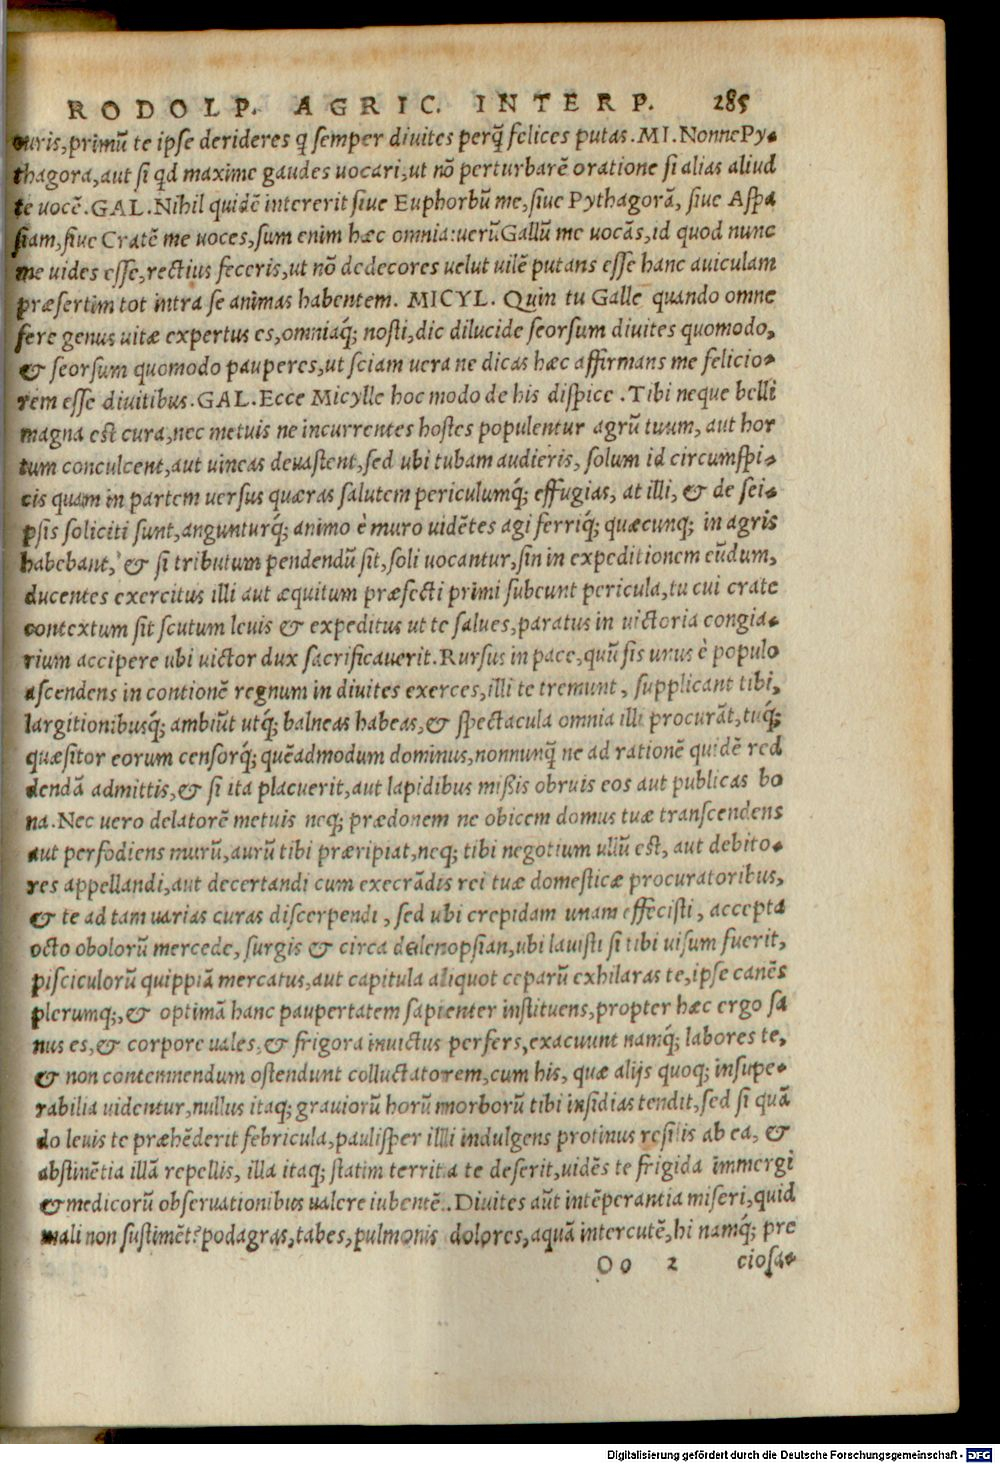 RODOLP. AGRIC. INTERP. 285
turis, primũ te ipse derideres q̃ semper diuites perq̃ felices putas. MI. Nonne Py-
thagora, aut si qd maxime gaudes uocari, ut nõ perturbarẽ oratione si alias aliud
te uocẽ. GAL. Nihil quidẽ intererit siue Euphorbũ me, siue Pythagorã, siue Aspa
siam, siue Cratẽ me uoces, sum enim hæc omnia: uerũ Gallũ me uocãs, id quod nunc
me uides esse, rectius feceris, ut nõ dedecores uelut uilẽ putans esse hanc auiculam
præsertim tot intra se animas habentem. MICYL. Quin tu Galle quando omne
fere genus uitæ expertus es, omniaq; nosti, dic dilucide seorsum diuites quomodo,
& seorsum quomodo pauperes, ut sciam uera ne dicas hæc affirmans me felicio-
rem esse diuitibus. GAL. Ecce Micylle hoc modo de his dispice. Tibi neque belli
magna est cura, nec metuis ne incurrentes hostes populentur agrũ tuum, aut hor
tum conculcent, aut uineas deuastent, sed ubi tubam audieris, solum id circumspi-
cis quam in partem uersus quæras salutem periculumq; effugias, at illi, & de sei-
psis soliciti sunt, angunturq; animo è muro uidẽtes agi ferriq; quæcunq; in agris
habebant, & si tributum pendendũ sit, soli uocantur, sin in expeditionem eũdum,
ducentes exercitus illi aut æquitum præfecti primi subeunt pericula, tu cui crate
contextum sit scutum leuis & expeditus ut te salues, paratus in uictoria congia-
rium accipere ubi uictor dux sacrificauerit. Rursus in pace, quũ sis unus è populo
ascendens in contionẽ regnum in diuites exerces, illi te tremunt, supplicant tibi,
largitionibusq; ambiũt utq; balneas habeas, & spectacula omnia illi procurãt, tuq;
quæsitor eorum censorq; quẽadmodum dominus, nonnunq̃ ne ad rationẽ quidẽ red
dendã admittis, & si ita placuerit, aut lapidibus mißis obruis eos aut publicas bo
na. Nec uero delatorẽ metuis neq; prædonem ne obicem domus tuæ transcendens
aut perfodiens murũ, aurũ tibi præripiat, neq; tibi negotium ullũ est, aut debito-
res appellandi, aut decertandi cum execrãdis rei tuæ domesticæ procuratoribus,
& te ad tam uarias curas discerpendi, sed ubi crepidam unam effecisti, accepta
octo obolorũ mercede, surgis & circa delenopsian, ubi lauisti si tibi uisum fuerit,
pisciculorũ quippiã mercatus, aut capitula aliquot ceparũ exhilaras te, ipse canẽs
plerumq;, & optimã hanc paupertatem sapienter instituens, propter hæc ergo sa
nus es, & corpore uales, & frigora inuictus perfers, exacuunt namq; labores te,
& non contemnendum ostendunt colluctatorem, cum his, quæ alijs quoq; insupe-
rabilia uidentur, nullus itaq; grauiorũ horũ morborũ tibi insidias tendit, sed si quã
do leuis te præhẽderit febricula, paulisper illi indulgens protinus resilis ab ea, &
abstinẽtia illã repellis, illa itaq; statim territa te deserit, uidẽs te frigida immergi
& medicorũ obseruationibus ualere iubentẽ. Diuites aũt intẽperantia miseri, quid
mali non sustinẽt? podagras, tabes, pulmonis dolores, aquã intercutẽ, hi namq; pre
Oo 2 ciosa-
Digitalisierung gefördert durch die Deutsche Forschungsgemeinschaft - DFG